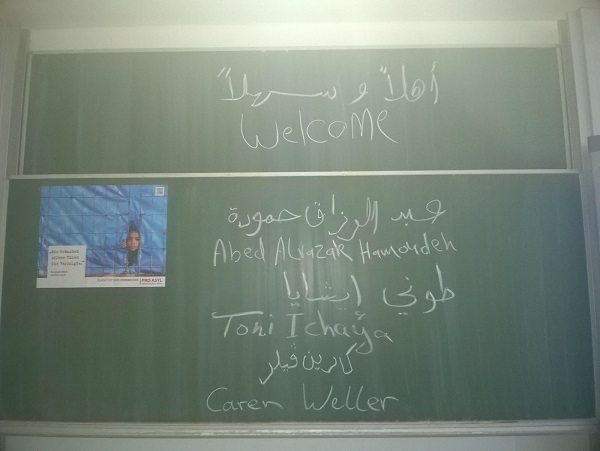 أهلاً وسهلاً
Welcome
عبد الرزاق حمودة
Abed Alrazak Hamoudeh
طوني إيشايا
Toni Ichaya
كارين ڤيلر
Caren Weller
PRO ASYL